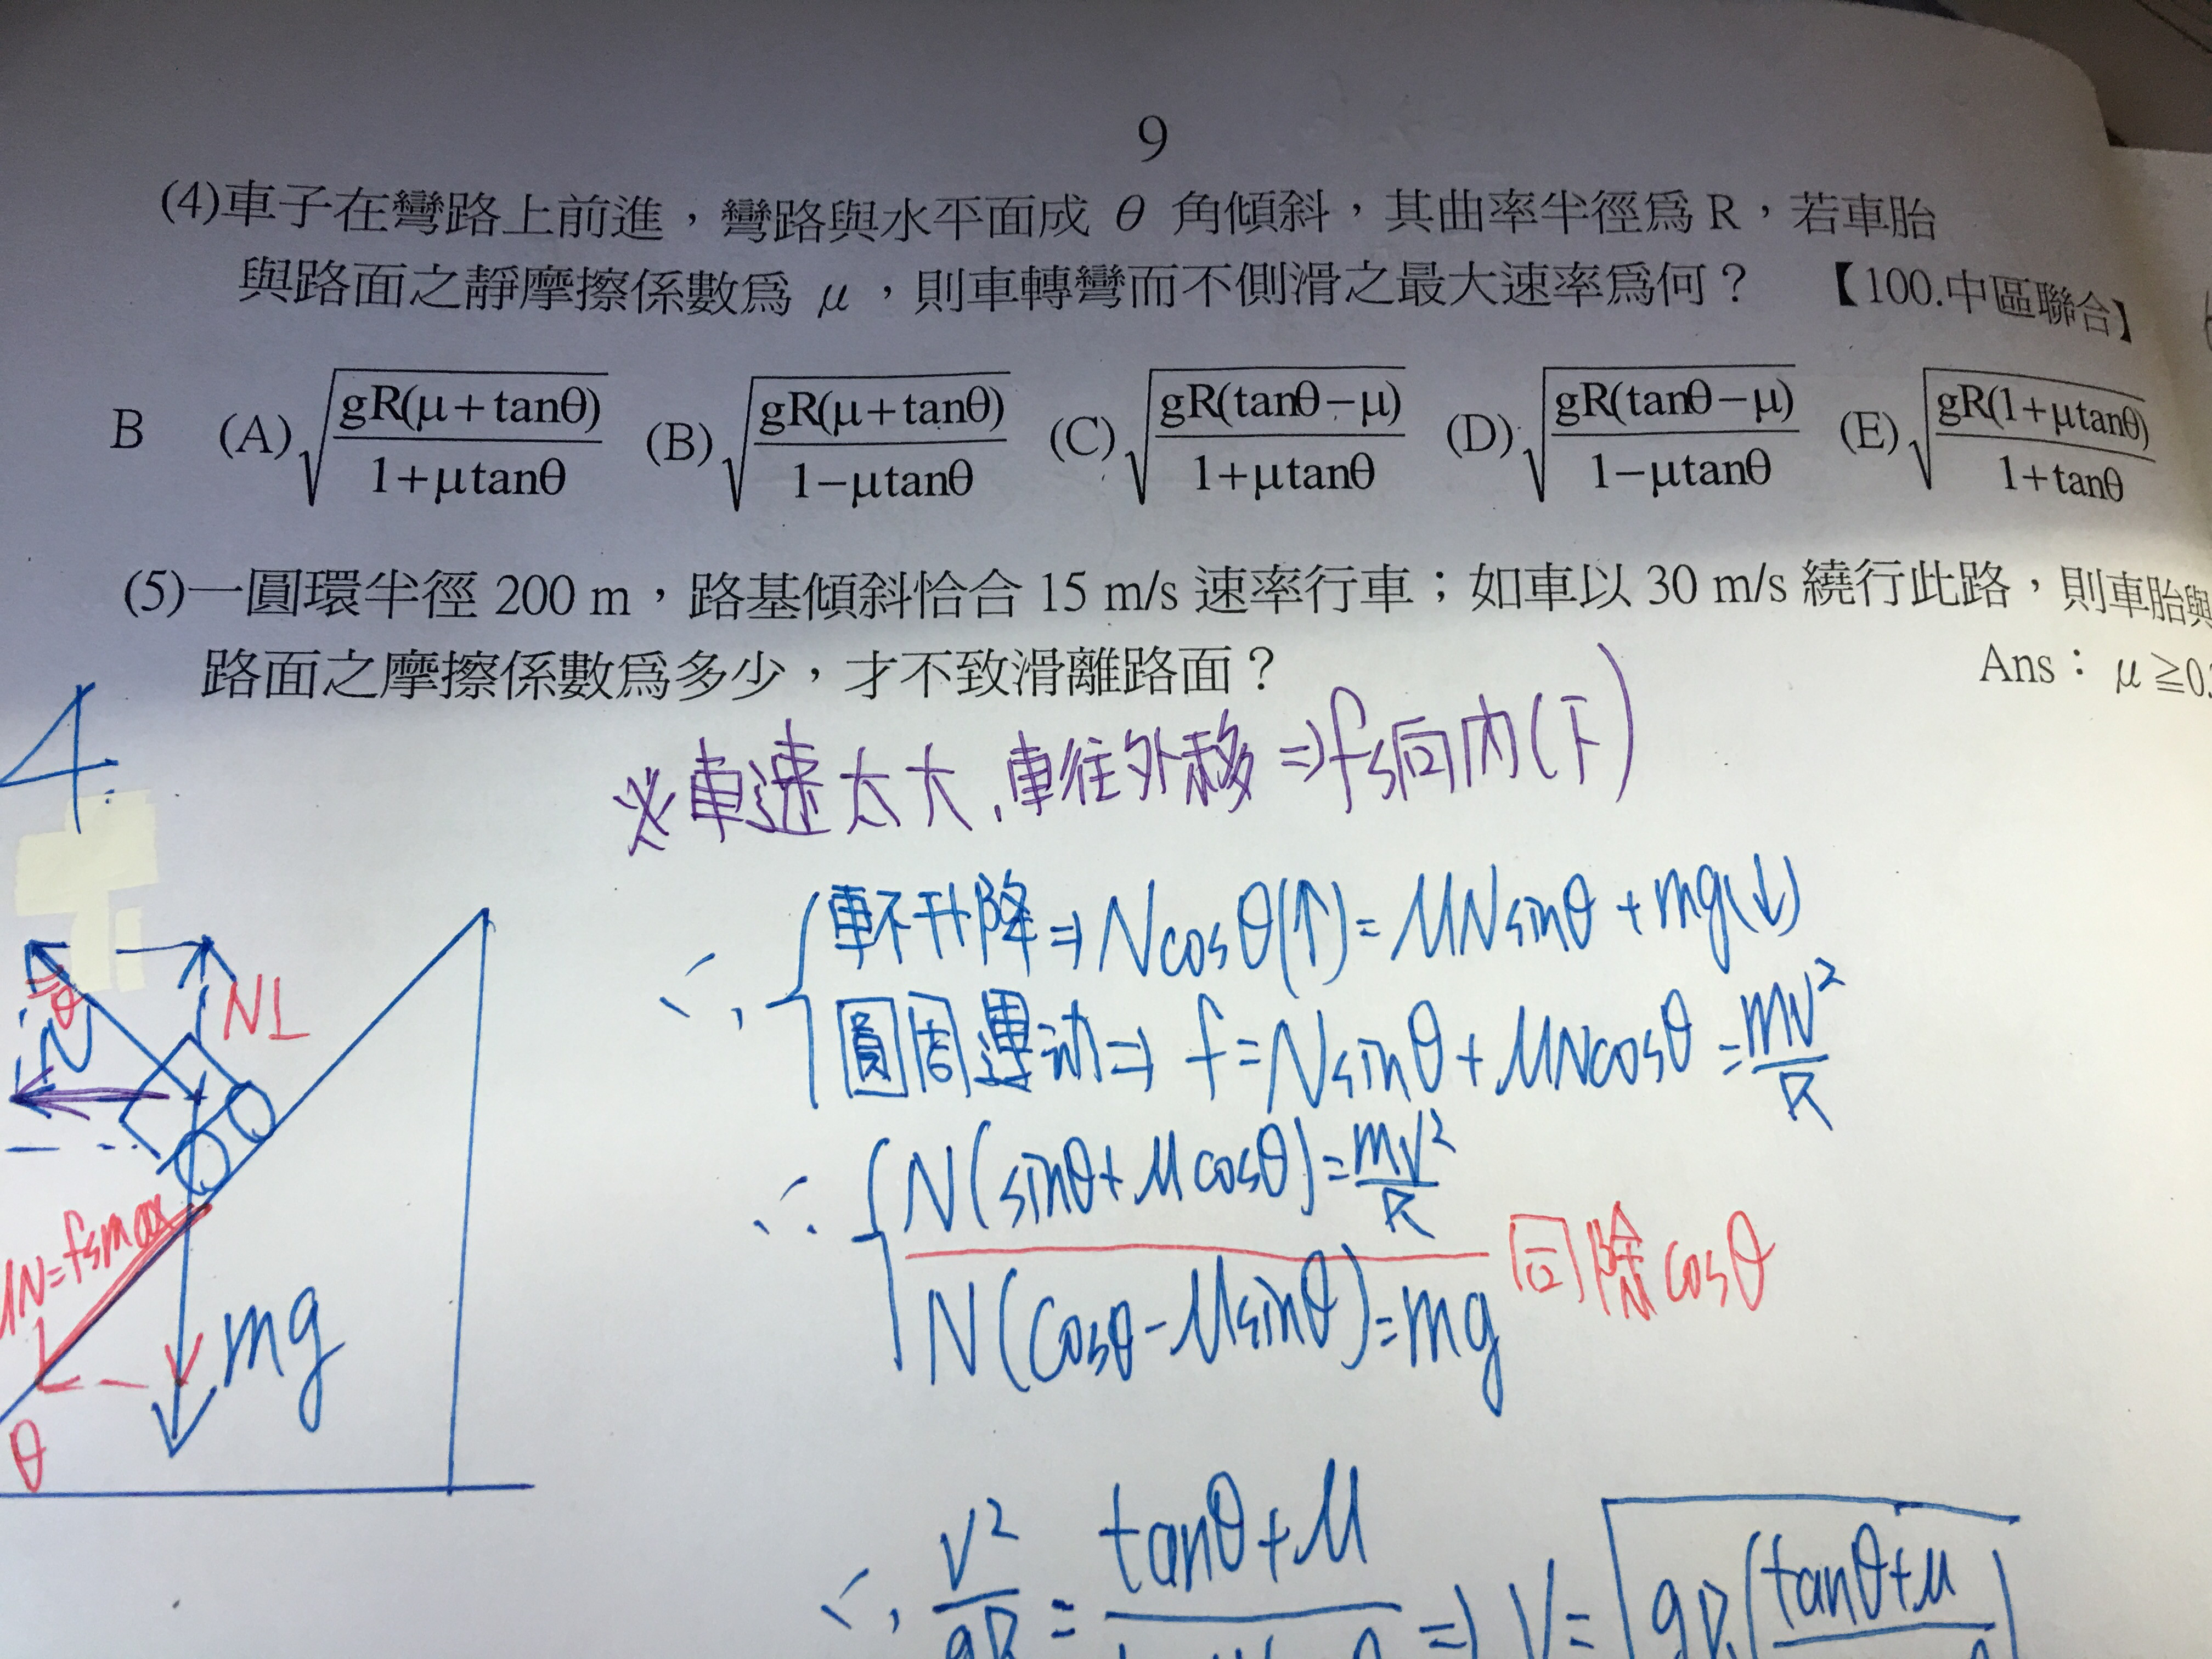 9
(4)車子在彎路上前進，彎路與水平面成 θ 角傾斜，其曲率半徑爲 R，若車胎
與路面之靜摩擦係數爲 μ，則車轉彎而不側滑之最大速率爲何？ 【100.中區聯合】
B (A)√(gR(μ+tanθ)/(1+μtanθ)) (B)√(gR(μ+tanθ)/(1−μtanθ)) (C)√(gR(tanθ−μ)/(1+μtanθ)) (D)√(gR(tanθ−μ)/(1−μtanθ)) (E)√(gR(1+μtanθ)/(1+tanθ))
(5)一圓環半徑 200 m，路基傾斜恰合 15 m/s 速率行車；如車以 30 m/s 繞行此路，則車胎與
路面之摩擦係數爲多少，才不致滑離路面？ Ans：μ≧0.
4.
※車速太大,車往外移⇒fs向內(下)
∴ 車不升降⇒Ncosθ(↑)=μNsinθ+mg(↓)
圓周運动⇒f=Nsinθ+μNcosθ=mv²/R
∴ N(sinθ+μcosθ)=mv²/R
N(cosθ-μsinθ)=mg
同除cosθ
N⊥
θ
N
μN=fsmax
mg
θ
∴ v²/gR = tanθ+μ
⇒ V=√gR(tanθ+μ